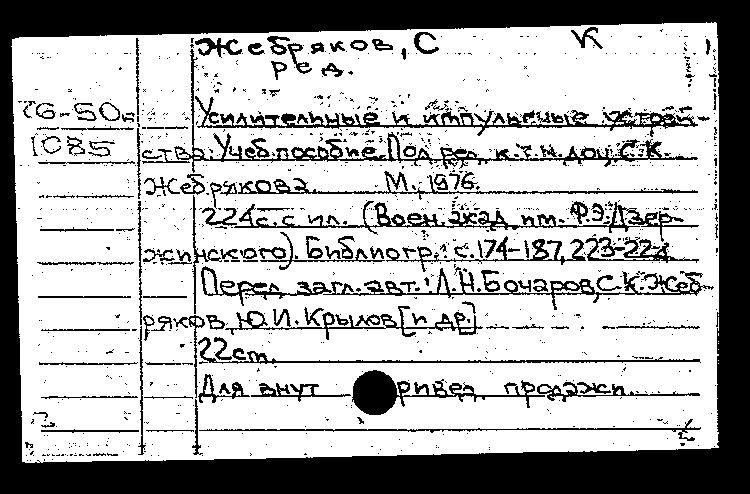 Жебряков, С К
ред.
76-50
1085
Усилительные и импульсные устрой-
ства. Учеб. пособие. Под ред. к.т.н. доц. С.К.
Жебрякова. М., 1976.
224 с. с ил. (Воен. акад. им. Ф.Э. Дзер-
жинского). Библиогр.: с. 174-187, 223-224
Перед загл. авт.: Л.Н. Бочаров, С.К. Жеб-
ряков, Ю.И. Крылов [и др.]
22 см.
Для внут ривед. продажи